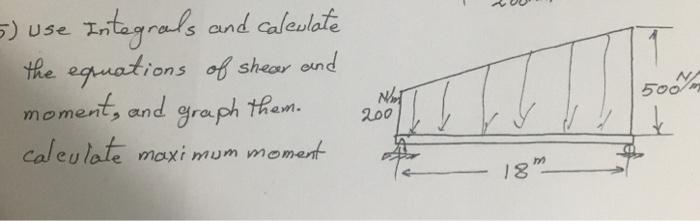 5) Use Integrals and calculate
the equations of shear and
moment, and graph them.
calculate maximum moment
N/m
200
500 N/m
18 m